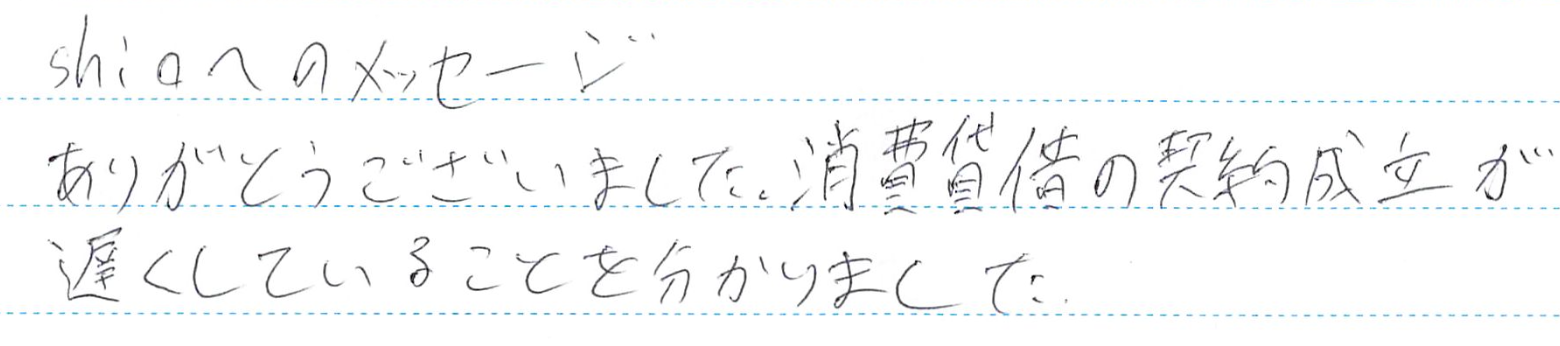 shioへのメッセージ
ありがとうございました。消費貸借の契約成立が
遅くしていることを分かりました.